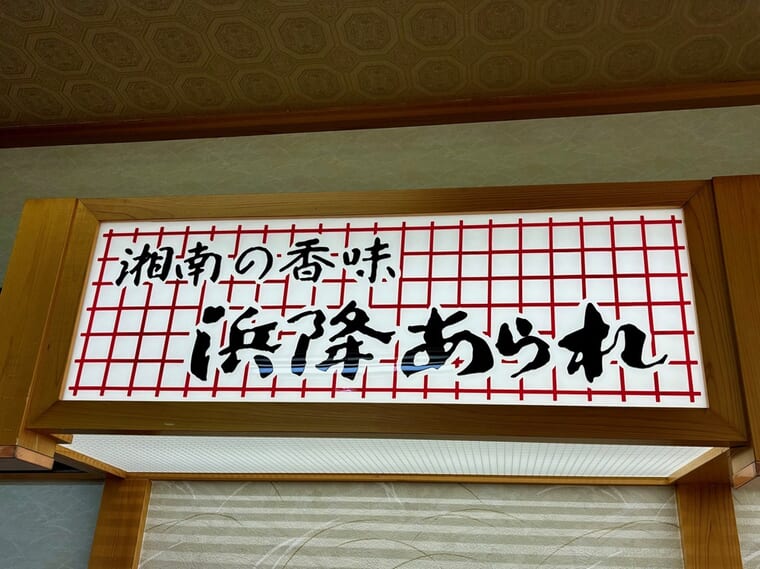 湘南の香味
浜降あられ